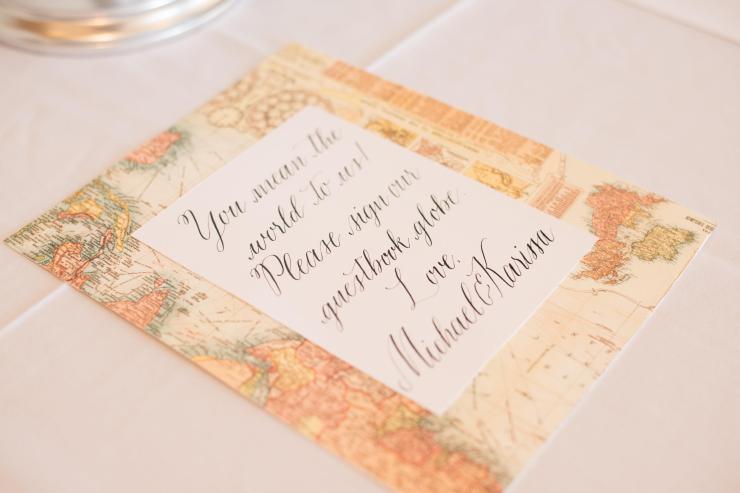 You mean the
world to us!
Please sign our
guestbook globe.
Love,
Michael & Karissa